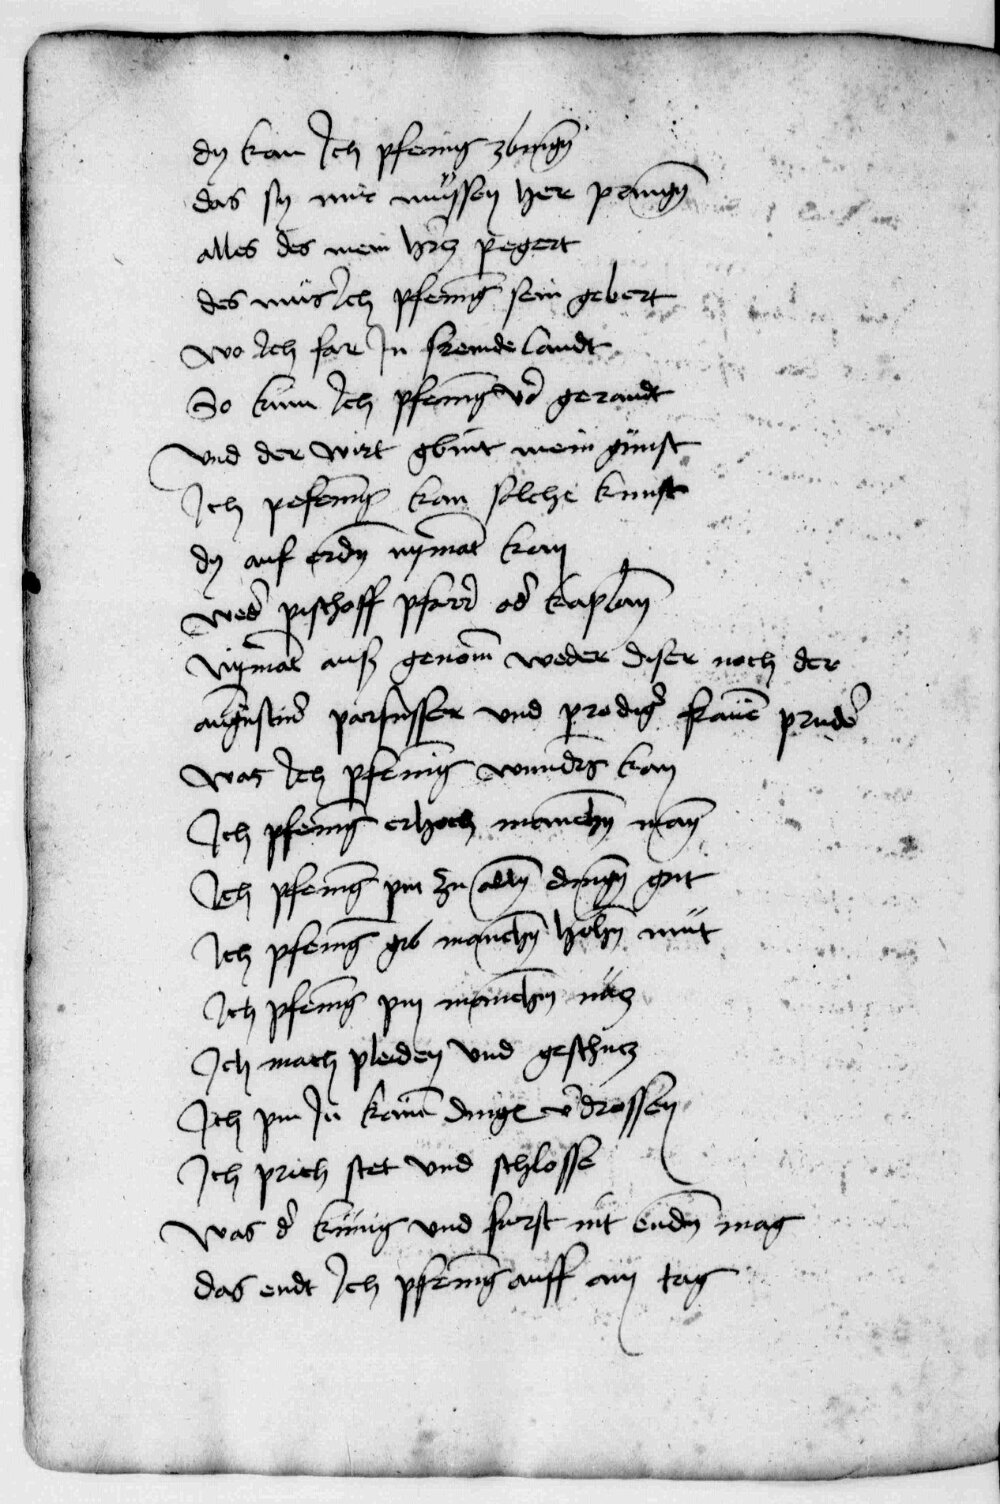 dy kan Ich pfening zbingn̄
das sy mir müssen her pringn̄
alles des mein hercz pegert
des müs Ich pfening sein gebert
wo Ich far In fremde landt
So kum Ich pfening gerandt
vnd der wirt gbint mein günst
Ich pefening kan solche kunst
dy auf erdn̄ nymat kan
wed̄ pischoff pfarr̄ od̄ kaplan̄
Nymat ausz genom̄ weder diser noch der
augustin̄ parfusser vnd prediḡ frauen̄ prud̄
was Ich pfening wunders kan
Ich pfening erhoch manchn̄ man̄
Ich pfening pin zu alln̄ dingn̄ gut
Ich pfening gib manchn̄ hohn̄ mut
Ich pfening pin manchm̄ nücz
Ich mach pleiden vnd geschucz
Ich pin In kainē dinge v̄drossen
Ich prich stet vnd schlosse
was d̄ künig vnd furst nit endn̄ mag
das endt Ich pfening auff ain tag